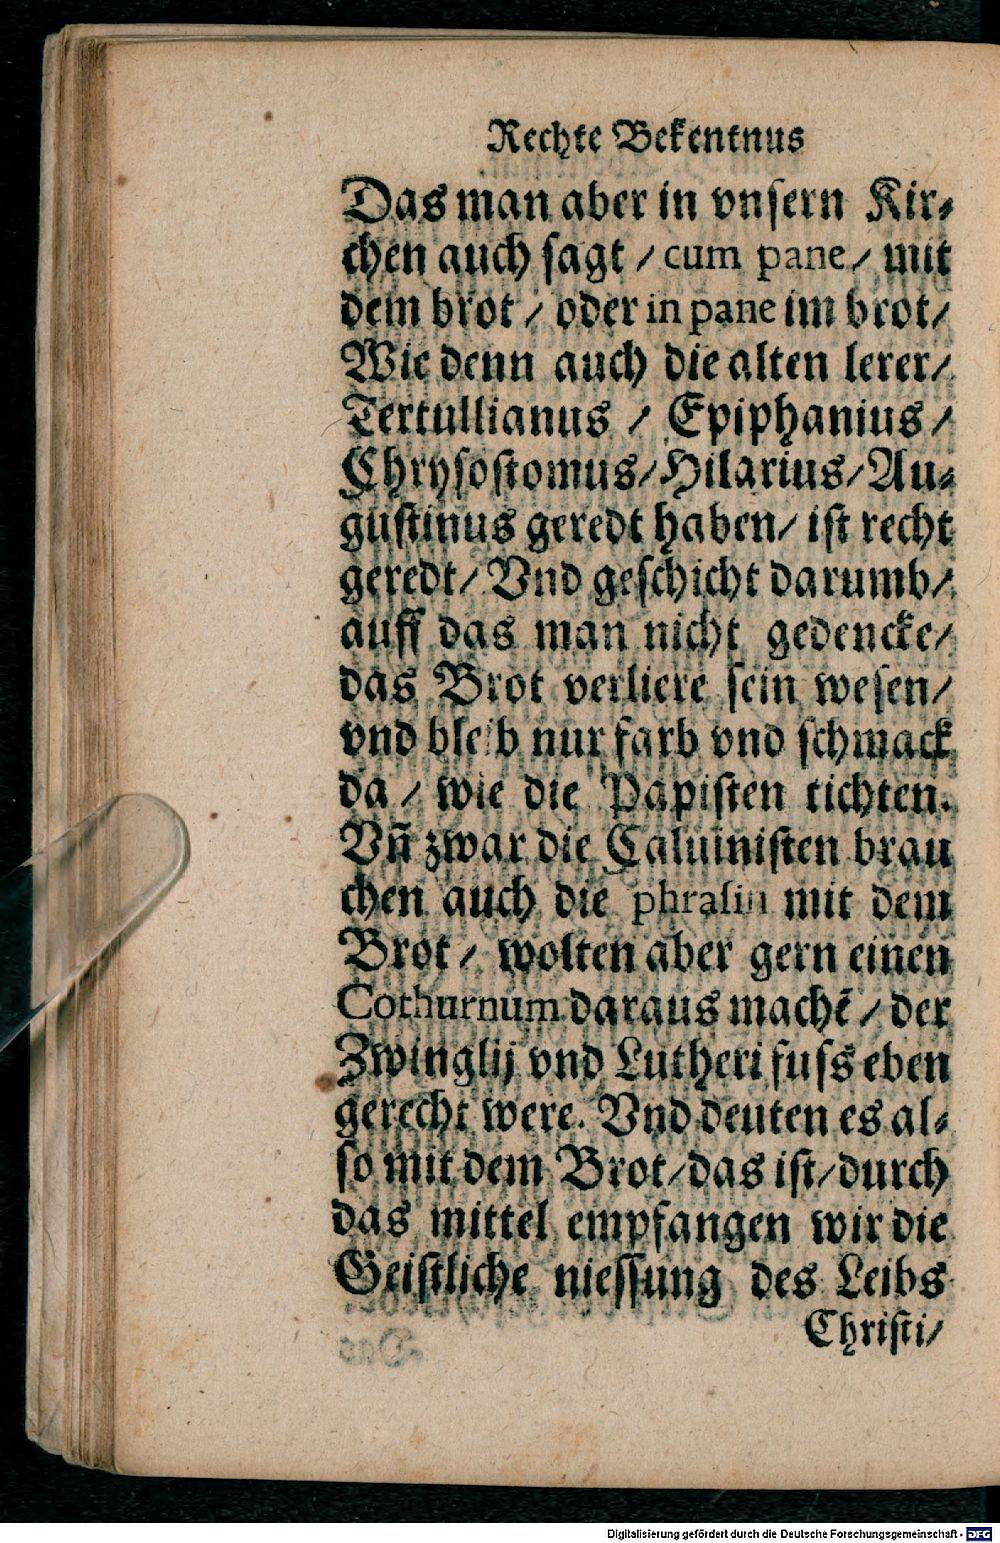 Rechte Bekentnus
Das man aber in vnsern Kir⸗
chen auch sagt / cum pane / mit
dem brot / oder in pane im brot /
Wie denn auch die alten lerer /
Tertullianus / Epiphanius /
Chrysostomus / Hilarius / Au⸗
gustinus geredt haben / ist recht
geredt / Vnd geschicht darumb /
auff das man nicht gedencke /
das Brot verliere sein wesen /
vnd bleib nur farb vnd schmack
da / wie die Papisten tichten.
Vñ zwar die Caluinisten brau
chen auch die phrasin mit dem
Brot / wolten aber gern einen
Cothurnum daraus machẽ / der
Zwinglij vnd Lutheri fuss eben
gerecht were. Vnd deuten es al⸗
so mit dem Brot / das ist / durch
das mittel empfangen wir die
Geistliche niessung des Leibs
Christi /
Digitalisierung gefördert durch die Deutsche Forschungsgemeinschaft - DFG